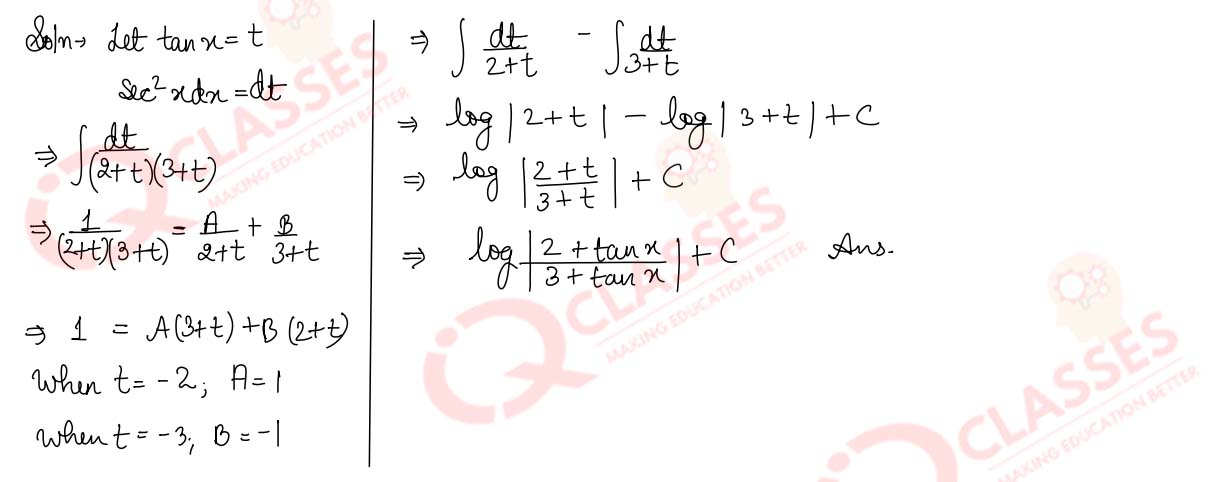 Soln→ Let tan x = t
sec² x dx = dt
⇒ ∫ dt/((2+t)(3+t))
⇒ 1/((2+t)(3+t)) = A/(2+t) + B/(3+t)
⇒ 1 = A(3+t) + B(2+t)
When t = -2, A = 1
when t = -3, B = -1
⇒ ∫ dt/(2+t) - ∫ dt/(3+t)
⇒ log |2+t| - log |3+t| + C
⇒ log |(2+t)/(3+t)| + C
⇒ log |(2+tan x)/(3+tan x)| + C Ans.
IQ CLASSES
MAKING EDUCATION BETTER
IQ CLASSES
MAKING EDUCATION BETTER
IQ CLASSES
MAKING EDUCATION BETTER